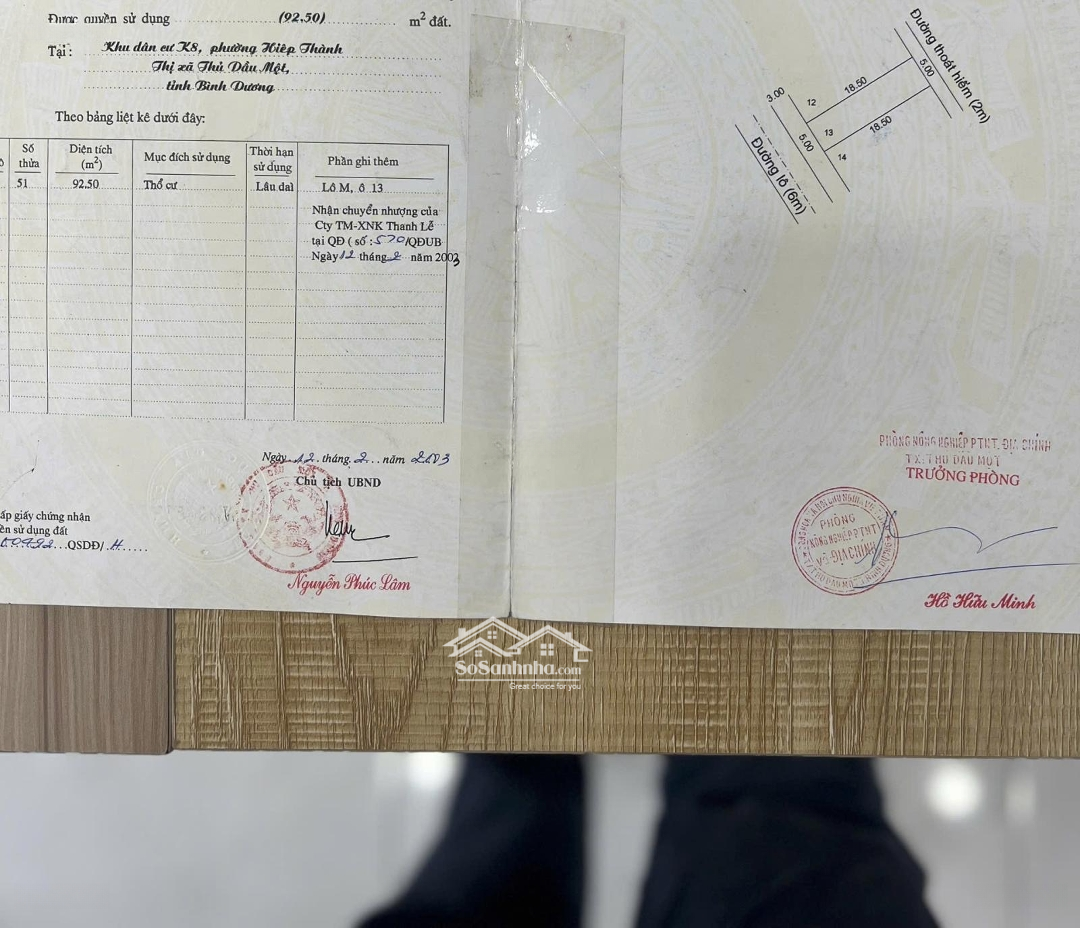 Được quyền sử dụng (92,50) m² đất.
Tại: Khu dân cư K8, phường Hiệp Thành
Thị xã Thủ Dầu Một,
tỉnh Bình Dương
Theo bảng liệt kê dưới đây:
Số thửa Diện tích (m²) Mục đích sử dụng Thời hạn sử dụng Phần ghi thêm
51 92.50 Thổ cư Lâu dài Lô M, ô 13
Nhận chuyển nhượng của
Cty TM-XNK Thanh Lễ
tại QĐ ( số : 570/QĐUB
Ngày 12 tháng 2 năm 2003
Ngày 12 tháng 2 năm 2003
Chủ tịch UBND
ấp giấy chứng nhận
ền sử dụng đất
QSDĐ/ H
Nguyễn Phúc Lâm
Đường thoát hiểm (2m)
5.00
18.50
3.00
12
13
5.00
18.50
14
Đường lô (6m)
PHÒNG NÔNG NGHIỆP PTNT. ĐỊA CHÍNH
TX. THỦ DẦU MỘT
TRƯỞNG PHÒNG
PHÒNG
NÔNG NGHIỆP PTNT
VÀ ĐỊA CHÍNH
Hồ Hữu Minh
SoSanhnha.com
Great choice for you